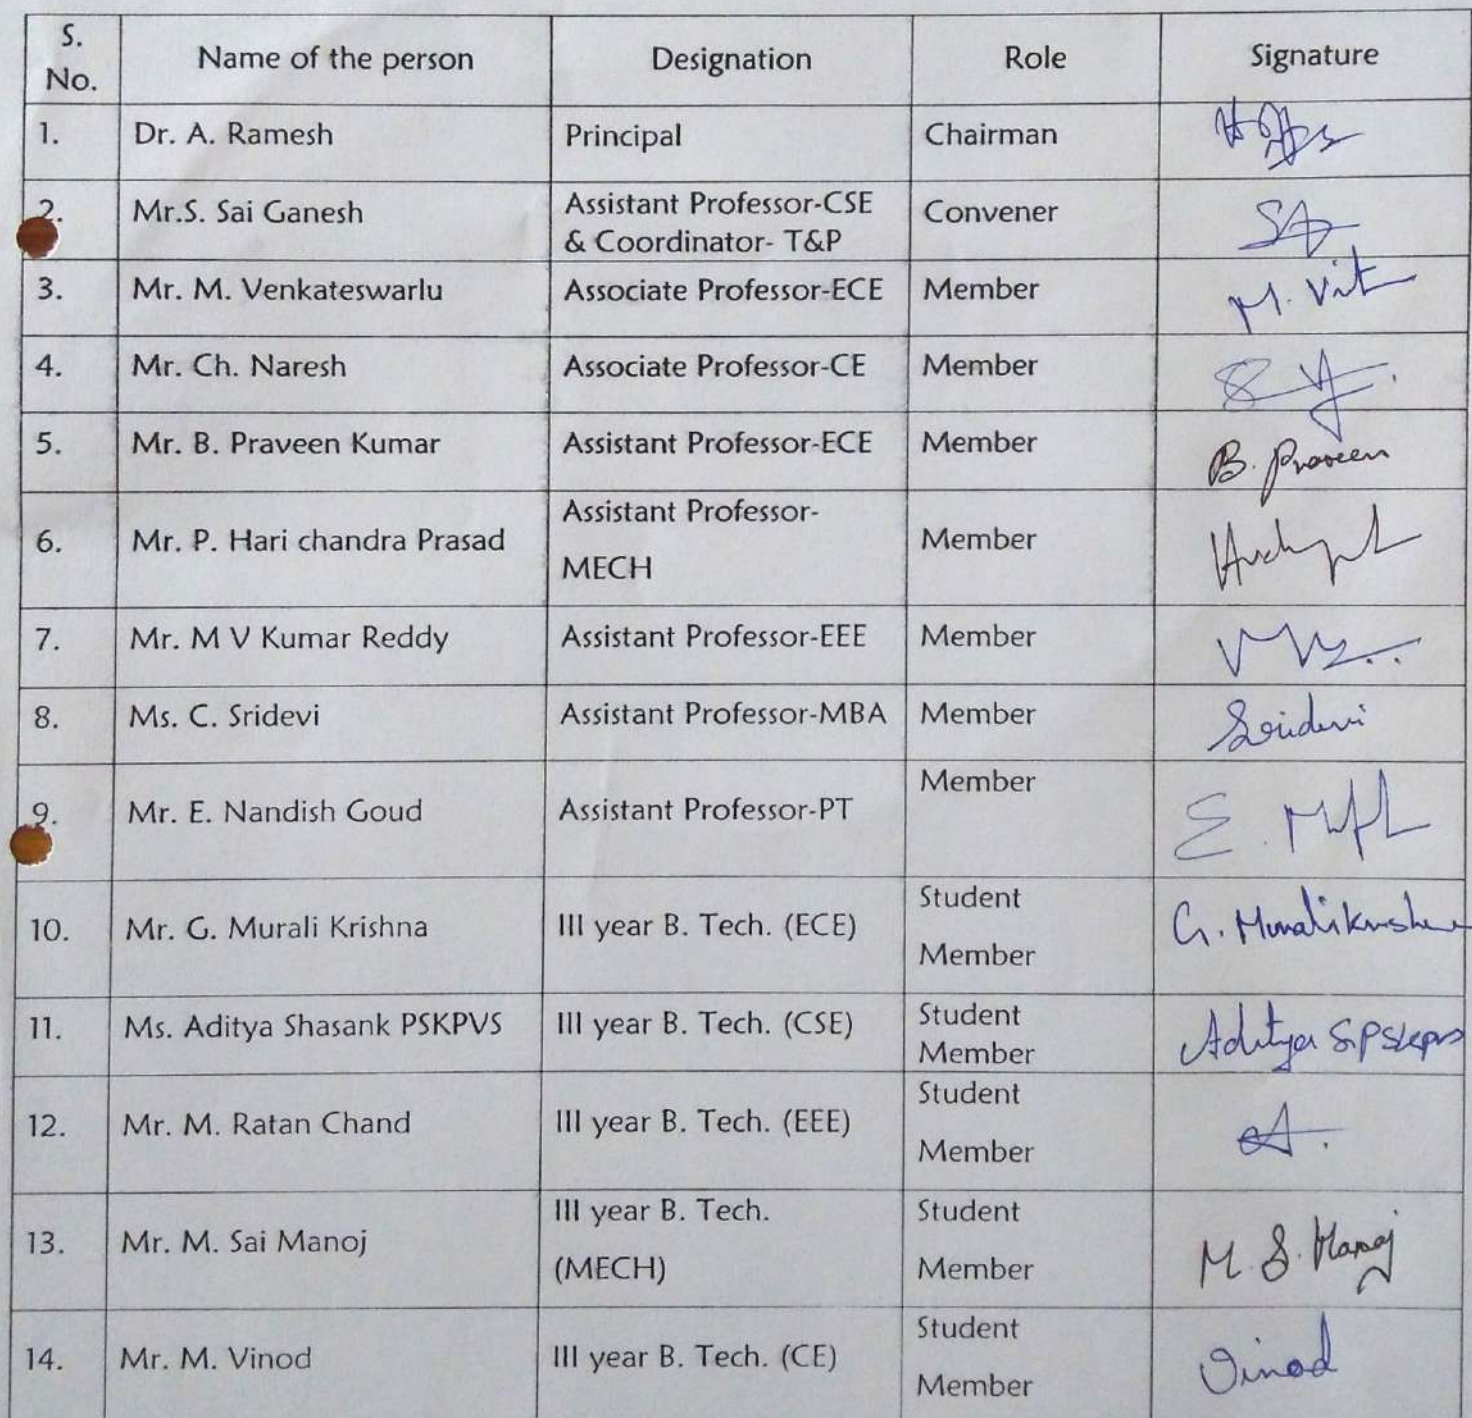 S.
No.
Name of the person
Designation
Role
Signature
1.
Dr. A. Ramesh
Principal
Chairman
2.
Mr.S. Sai Ganesh
Assistant Professor-CSE
& Coordinator- T&P
Convener
3.
Mr. M. Venkateswarlu
Associate Professor-ECE
Member
4.
Mr. Ch. Naresh
Associate Professor-CE
Member
5.
Mr. B. Praveen Kumar
Assistant Professor-ECE
Member
B. Praveen
6.
Mr. P. Hari chandra Prasad
Assistant Professor-
MECH
Member
7.
Mr. M V Kumar Reddy
Assistant Professor-EEE
Member
8.
Ms. C. Sridevi
Assistant Professor-MBA
Member
Sridevi
9.
Mr. E. Nandish Goud
Assistant Professor-PT
Member
10.
Mr. G. Murali Krishna
III year B. Tech. (ECE)
Student
Member
G. Muralikrishna
11.
Ms. Aditya Shasank PSKPVS
III year B. Tech. (CSE)
Student
Member
Aditya
12.
Mr. M. Ratan Chand
III year B. Tech. (EEE)
Student
Member
13.
Mr. M. Sai Manoj
III year B. Tech.
(MECH)
Student
Member
M. S. Manoj
14.
Mr. M. Vinod
III year B. Tech. (CE)
Student
Member
Vinod